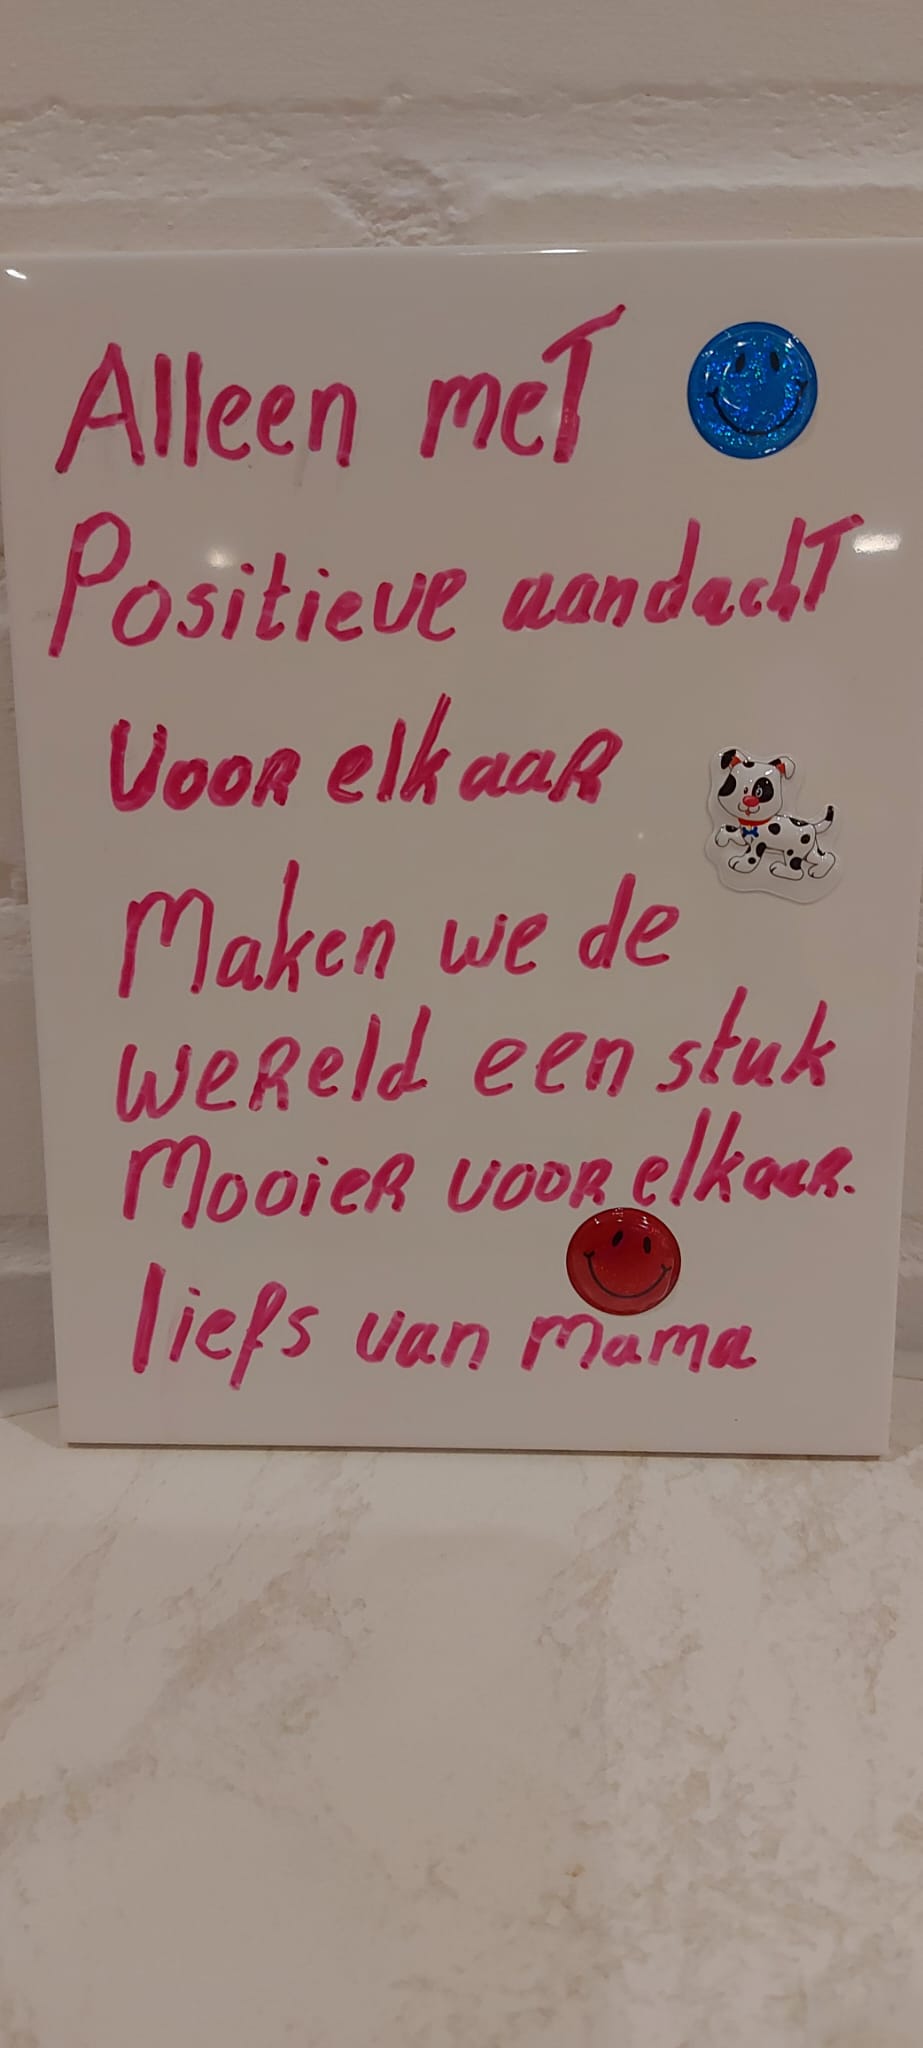 Alleen met
Positieve aandacht
Voor elkaar
Maken we de
wereld een stuk
Mooier voor elkaar.
liefs van mama